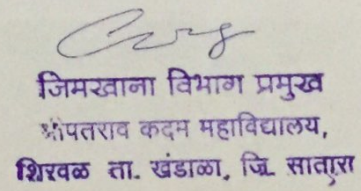 जिमखाना विभाग प्रमुख
श्रीपतराव कदम महाविद्यालय,
शिरवळ ता. खंडाळा, जि. सातारा